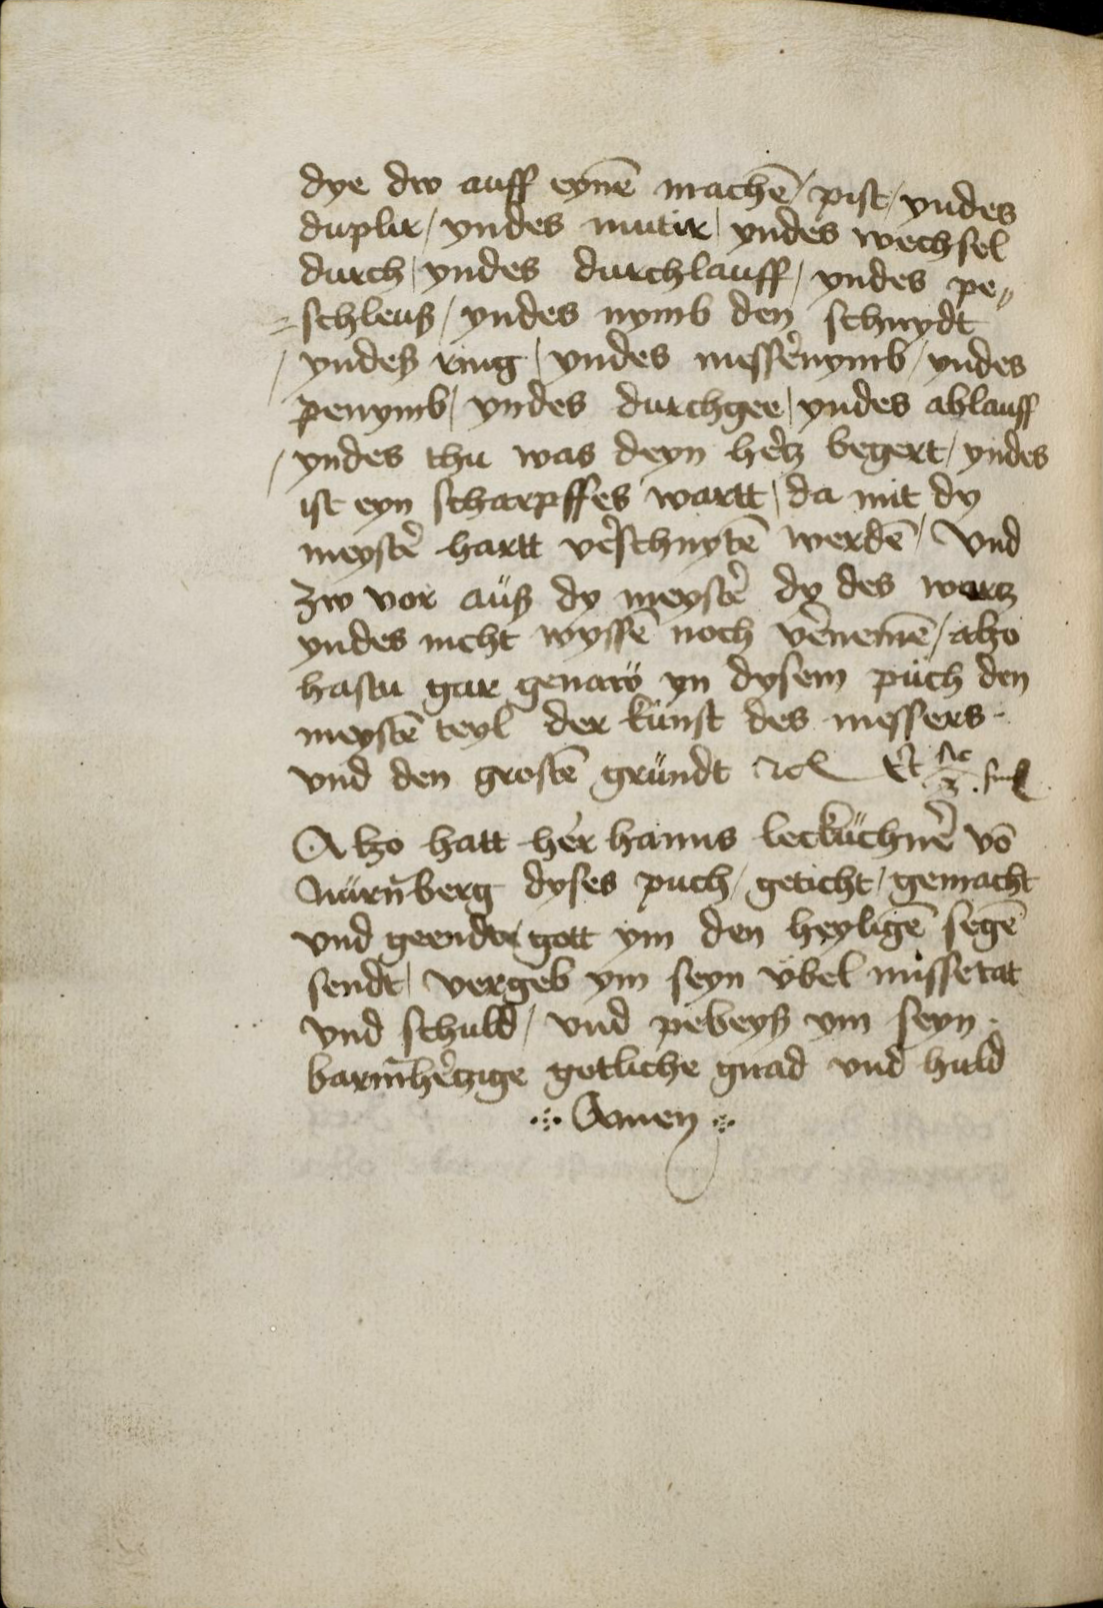 dye dw auff eynē machē / pist / yndes
duplir / yndes mutir / yndes wechsel
durch / yndes durchlauff / yndes pe„
=schleuß / yndes nymb den schnydt
/ yndeß ring / yndes messẽnymb / yndes
penymb / yndes durchgee / yndes ablauff
/ yndes thu was deyn hẽtz begert / yndes
ist eyn scharpffes wartt / da mit dy
meystẽ hartt vẽschnytē werdē / Vnd
zw vor auß dy meystẽ dy des wartz
yndes nicht wyssē noch vẽnemē / alzo
hastu gar genaw yn dysem püch den
meystē teyl der künst des messers
vnd den grostē gründt etc Et sic
Alzo hatt her hanns lecküchnẽ vō
Nürn̄berg dyses puch / geticht / gemacht
vnd geendet gott ym den heyligē segē
sendt / vergeb ym seyn vbel missetat
vnd schuld / vnd peweyß ym seyn
barm̄hẽtzige gotliche gnad vnd huld
Amen